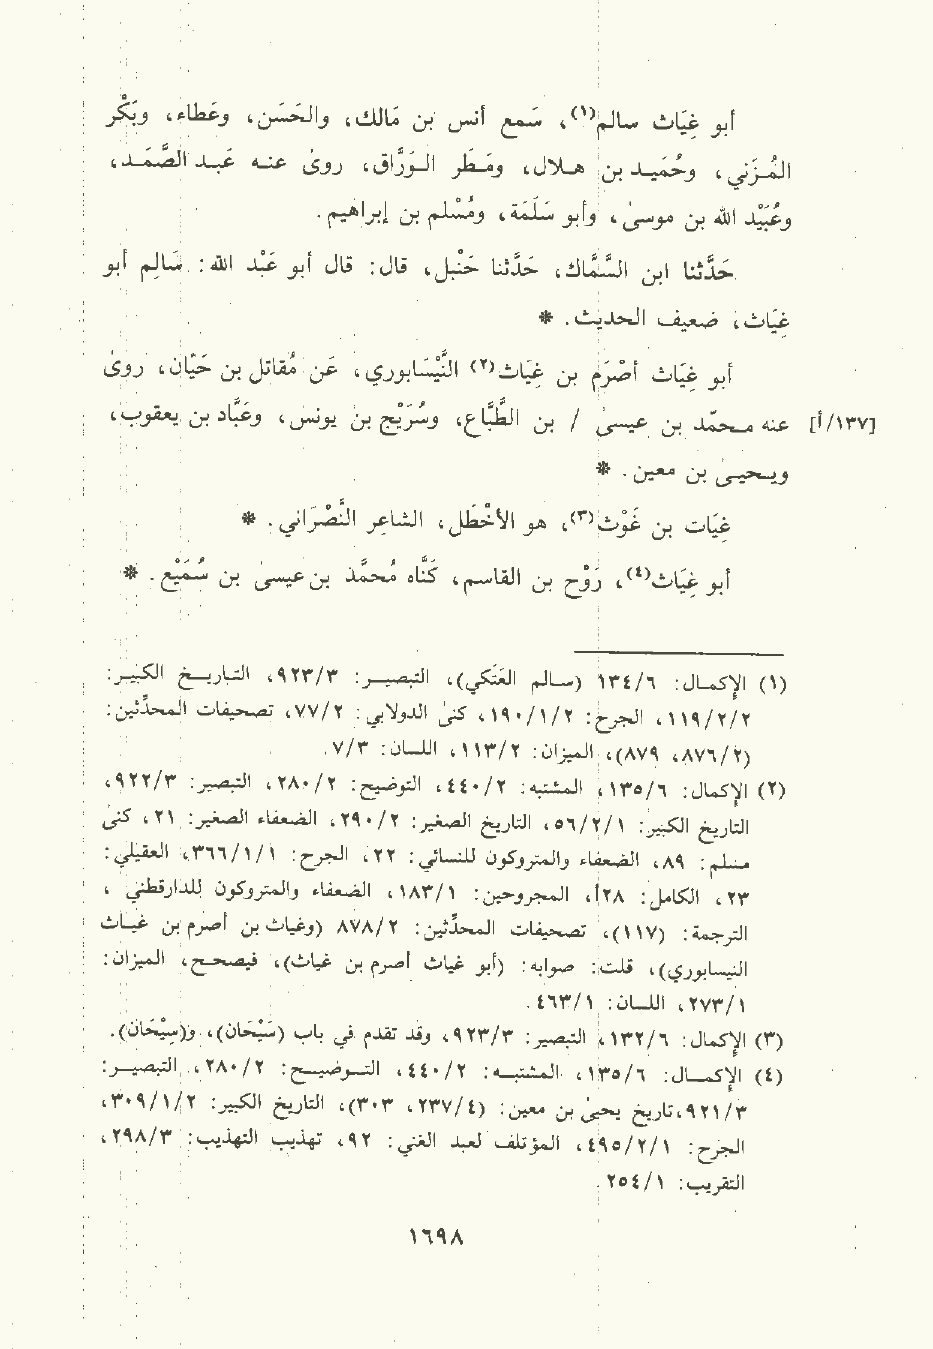 أبو غِيَاث سالم(١)، سَمع أنس بن مَالك، والحَسَن، وعَطاء، وبَكْر
المُزَني، وحُمَيد بن هلال، ومَطَر الوَرَّاق، روىٰ عنه عَبد الصَّمَد،
وعُبَيْد الله بن موسىٰ، وأبو سَلَمَة، ومُسْلم بن إبراهيم.
حَدَّثنا ابن السَّمَّاك، حَدَّثنا حَنْبل، قال: قال أبو عَبْد الله: سَالِم أبو
غِيَاث، ضعيف الحديث. *
أبو غِيَاث أصْرَم بن غِيَاث(٢) النَّيْسَابوري، عَن مُقاتل بن حَيَّان، روىٰ
[١٣٧/أ] عنه محمّد بن عيسىٰ / بن الطَّبَّاع، وسُرَيْج بن يونس، وعَبَّاد بن يعقوب،
ويحيىٰ بن معين. *
غِيَات بن غَوْث(٣)، هو الأخْطَل، الشاعِر النَّصْرَاني. *
أبو غِيَاث(٤)، رَوْح بن القاسم، كَنَّاه مُحمَّد بن عيسىٰ بن سُمَيْع. *
(١) الإكمال: ١٣٤/٦ (سالم العَتَكي)، التبصير: ٩٢٣/٣، التاريخ الكبير:
١١٩/٢/٢، الجرح: ١٩٠/١/٢، كنىٰ الدولابي: ٧٧/٢، تصحيفات المحدِّثين:
(٨٧٦/٢، ٨٧٩)، الميزان: ١١٣/٢، اللسان: ٧/٣.
(٢) الإكمال: ١٣٥/٦، المشتبه: ٤٤٠/٢، التوضيح: ٢٨٠/٢، التبصير: ٩٢٢/٣،
التاريخ الكبير: ٥٦/٢/١، التاريخ الصغير: ٢٩٠/٢، الضعفاء الصغير: ٢١، كنىٰ
مسلم: ٨٩، الضعفاء والمتروكون للنسائي: ٢٢، الجرح: ٣٦٦/١/١، العقيلي:
٢٣، الكامل: ٢٨أ، المجروحين: ١٨٣/١، الضعفاء والمتروكون للدارقطني،
الترجمة: (١١٧)، تصحيفات المحدِّثين: ٨٧٨/٢ (وغياث بن أصرم بن غياث
النيسابوري)، قلت: صوابه: (أبو غياث أصرم بن غياث)، فيصحح، الميزان:
٢٧٣/١، اللسان: ٤٦٣/١.
(٣) الإكمال: ١٣٢/٦، التبصير: ٩٢٣/٣، وقد تقدم في باب (سَيْحَان)، و(سِيْحَان).
(٤) الإكمال: ١٣٥/٦، المشتبه: ٤٤٠/٢، التوضيح: ٢٨٠/٢، التبصير:
٩٢١/٣، تاريخ يحيىٰ بن معين: (٢٣٧/٤، ٣٠٣)، التاريخ الكبير: ٣٠٩/١/٢،
الجرح: ٤٩٥/٢/١، المؤتلف لعبد الغني: ٩٢، تهذيب التهذيب: ٢٩٨/٣،
التقريب: ٢٥٤/١.
١٦٩٨